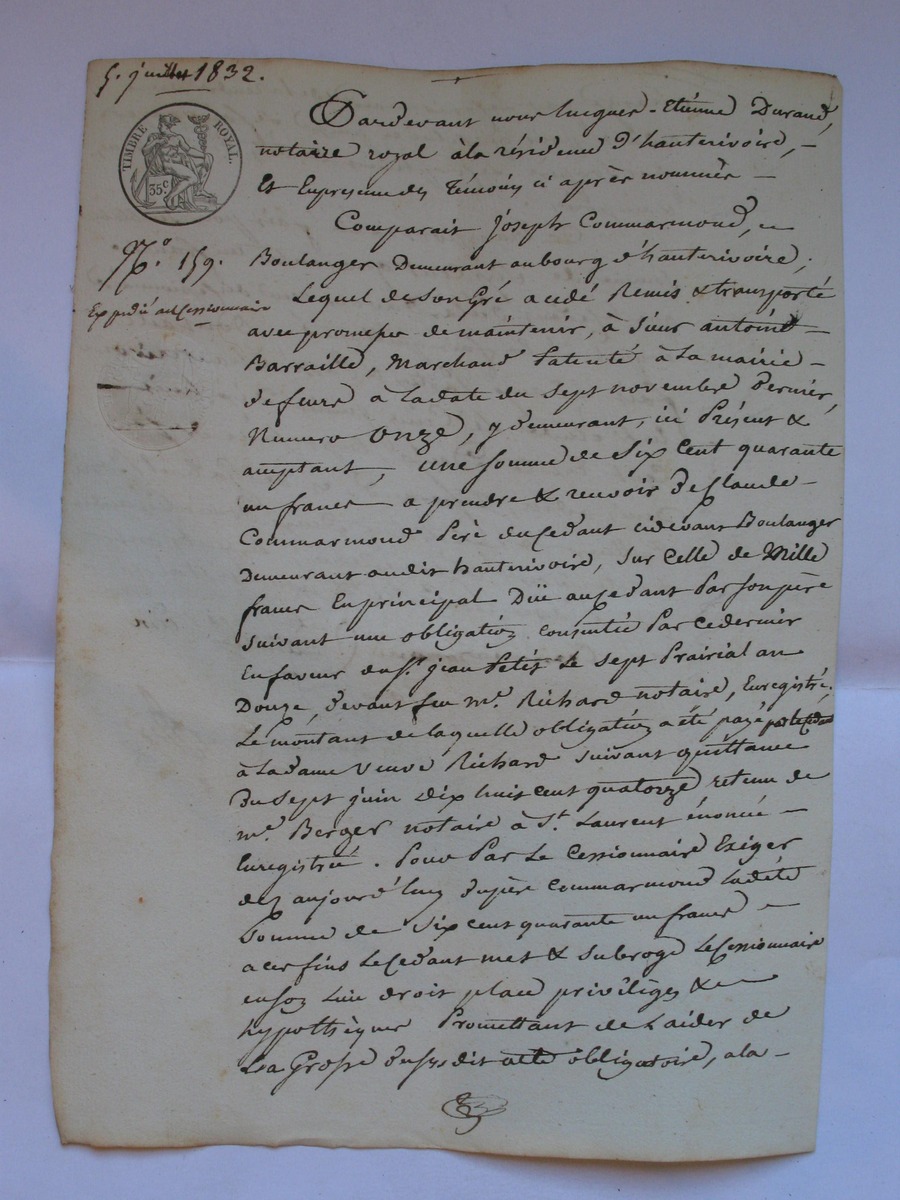 5. juillet 1832.
TIMBRE ROYAL.
35c
N.o 159.
Expédié au Cessionnaire
Pardevant nous Jucques-Etienne Durand,
notaire royal à la résidence d'hauterivoire, -
Et En présence des Témoins ci après nommés -
Comparait Joseph Commarmond,
Boulanger Demeurant au bourg d'hauterivoire,
Lequel de son Gré a cédé Remis & transporté
avec promesse de maintenir, à Sieur antoine
Barraille, Marchand Patenté à La mairie -
de feurs à La date du Sept novembre Dernier,
Numero Onze, y demeurant, ici Présent &
acceptant, une Somme de Six Cent quarante
un francs a prendre & recevoir de Claude -
Commarmond Père du Cédant cidevant Boulanger
Demeurant audit hauterivoire, Sur Celle de Mille
francs En principal Düe au Cédant Par Son père
Suivant une obligation consentie Par ce dernier
En faveur du Sr. jean Petit Le Sept Prairial an
Douze, devant feu Me. Richard notaire, Enregistrée,
Le montant de laquelle obligation a été payé par le Cédant
à La dame Veuve Richard Suivant quittance
Du Sept juin dix huit cent quatorze retenu de
Me. Berger notaire à St. Laurent énoncée -
Enregistrée. Pour Par Le Cessionnaire Exiger
dez aujourd'huy du père Commarmond Ladite
Somme de Six cent quarante un francs -
a ces fins Le Cedant met & Subroge Le Cessionnaire
en son Lieu droit place priviléges &
hypothèques Promettant de L'aider de
La Grosse du susdit acte obligatoire, a la -